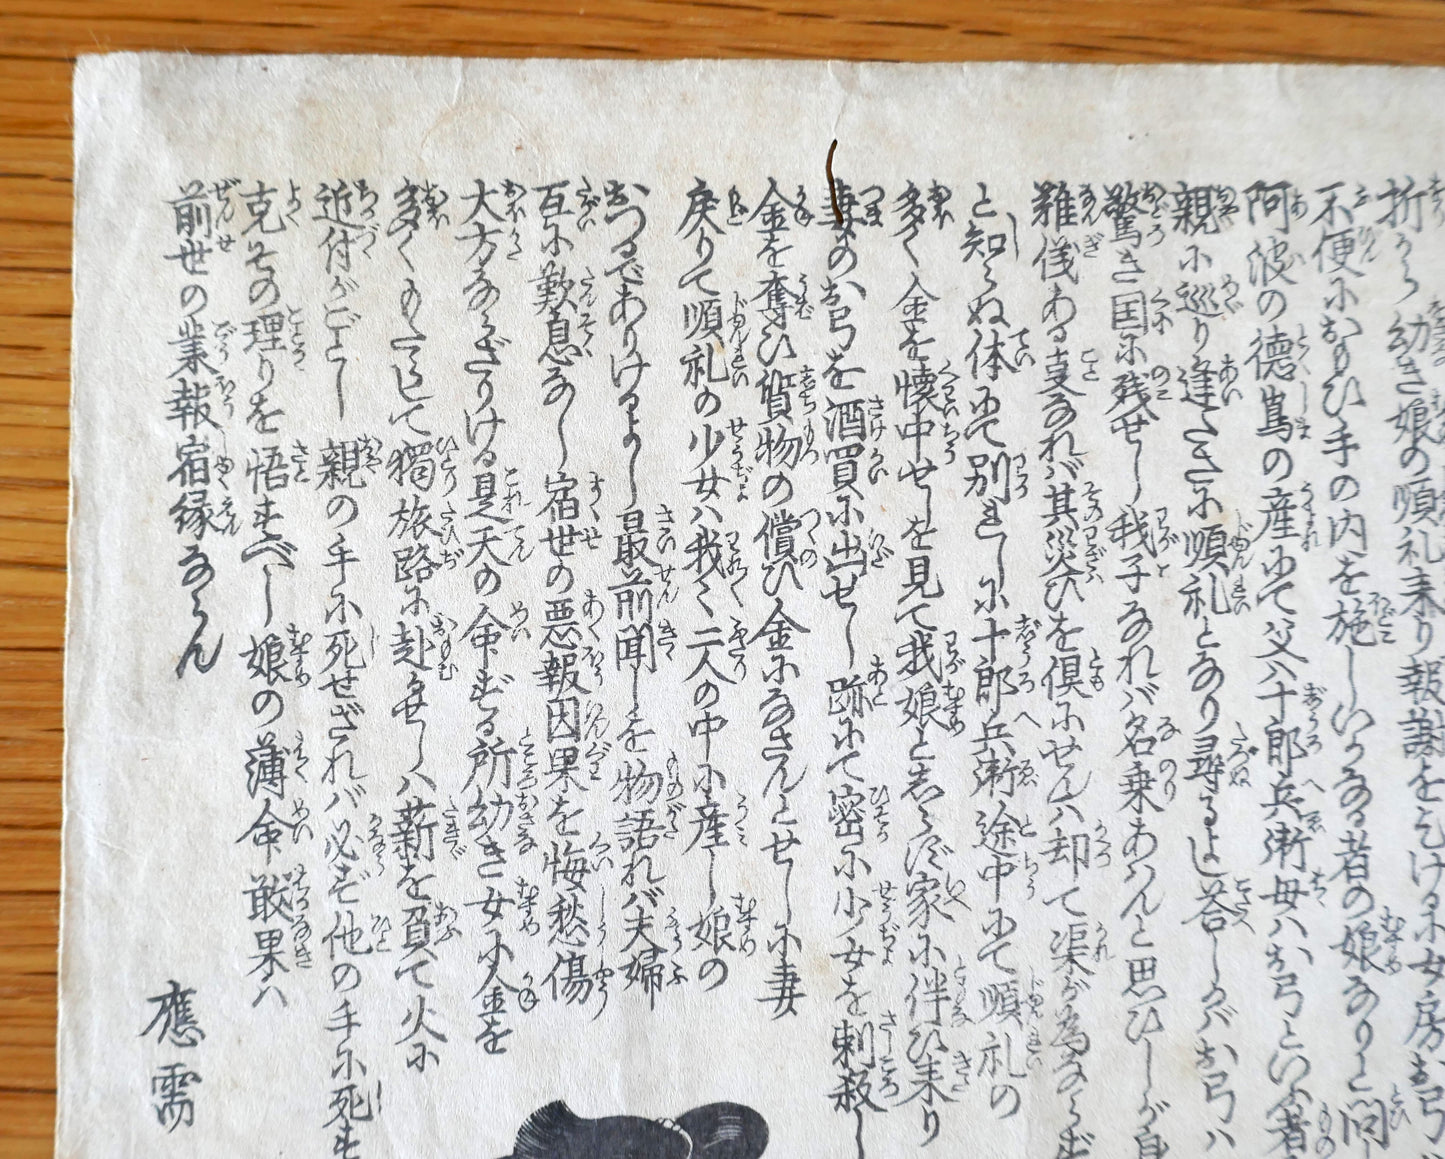 折から幼き娘の順礼来り報謝を乞けるに女房お弓
不便におもひ手の内を施しいかなる者の娘なりと問
阿波の徳嶌の産にて父ハ十郎兵衛母ハお弓といふ者
親に巡り逢たさに順礼となり尋るよし答しかバお弓ハ
驚き国に残せし我子なれバ名乗あハんと思ひしが身
難儀ある支なれバ其災ひを倶にせんハ却て渠が為ならず
と知らぬ体にて別れしに十郎兵衛途中にて順礼の
多く金を懐中せしを見て我娘と志らず家に伴ひ来り
妻のお弓を酒買に出せし跡にて密に少女を刺殺し
金を奪ひ質物の償ひ金になさんとせしに妻
戻りて順礼の少女ハ我々二人の中に産し娘の
おつるでありけるよし最前聞しを物語れバ夫婦
互に歎息なし宿世の悪報因果を悔愁傷
大方ならざりける是天の命ずる所幼き女に金を
多くもたして獨旅路に赴かせしハ薪を負て火に
近付がごとし親の手に死せざれバ必ず他の手に死す
克その理りを悟すべし娘の薄命敢果ハ
前世の業報宿縁ならん
應需